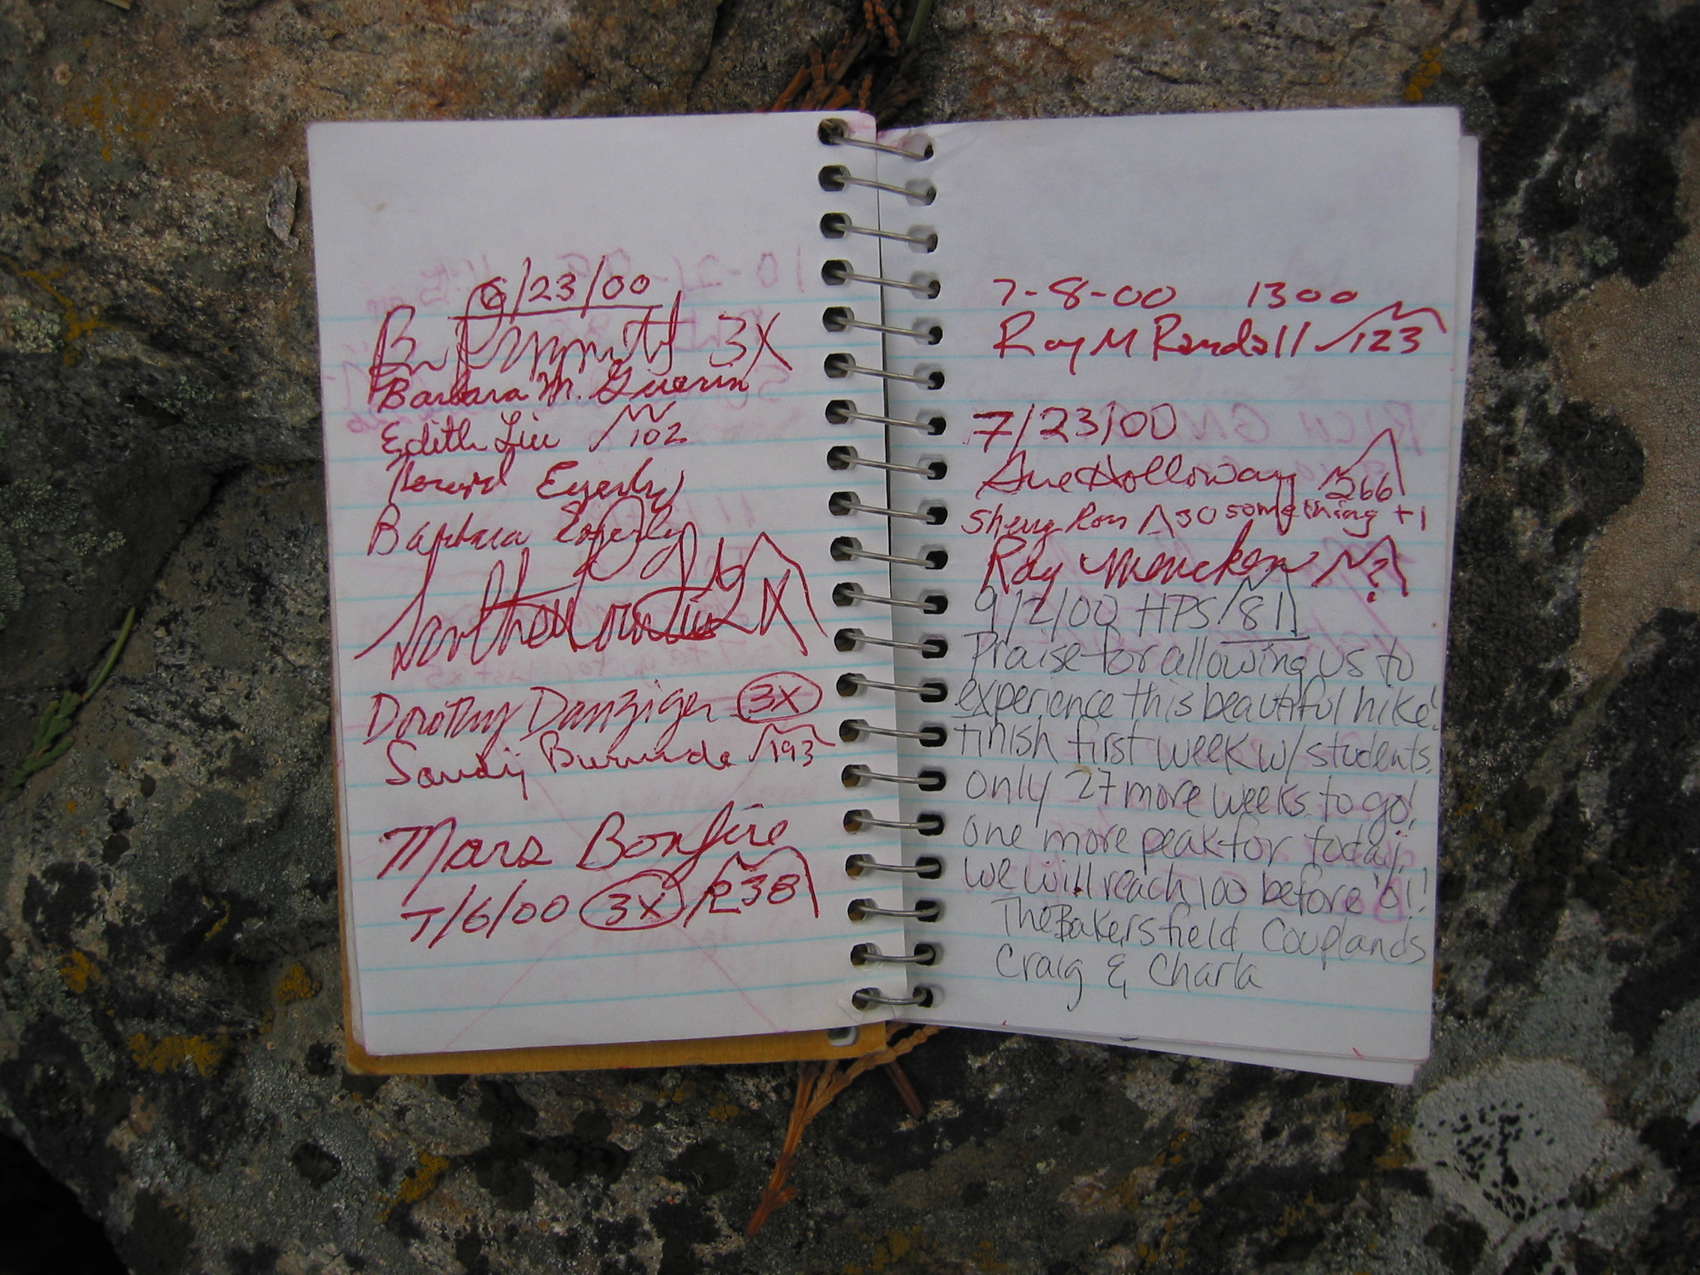 6/23/00
3X
Barbara M. Guerin
Edith Liu 102
Barbara
Dorothy Danziger 3X
Sandy 193
Mars Bonfire
7/6/00 3X 238
7-8-00 1300
Ray M Randall 123
7/23/00
Sue Holloway 266
30 something +1
Ray ?
9/2/00 HPS 81
Praise for allowing us to
experience this beautiful hike!
Finish first week w/ students.
only 27 more weeks to go!
one more peak for today.
We will reach 100 before '01!
The Bakersfield Couplands
Craig & Charla